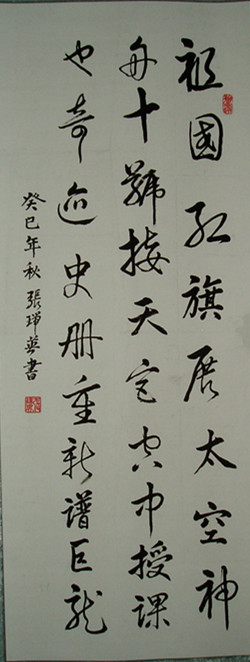 祖國紅旗展太空神
舟十號接天宮空中授課
也奇迹史册重新譜巨龍
癸巳年秋 張瑞英書